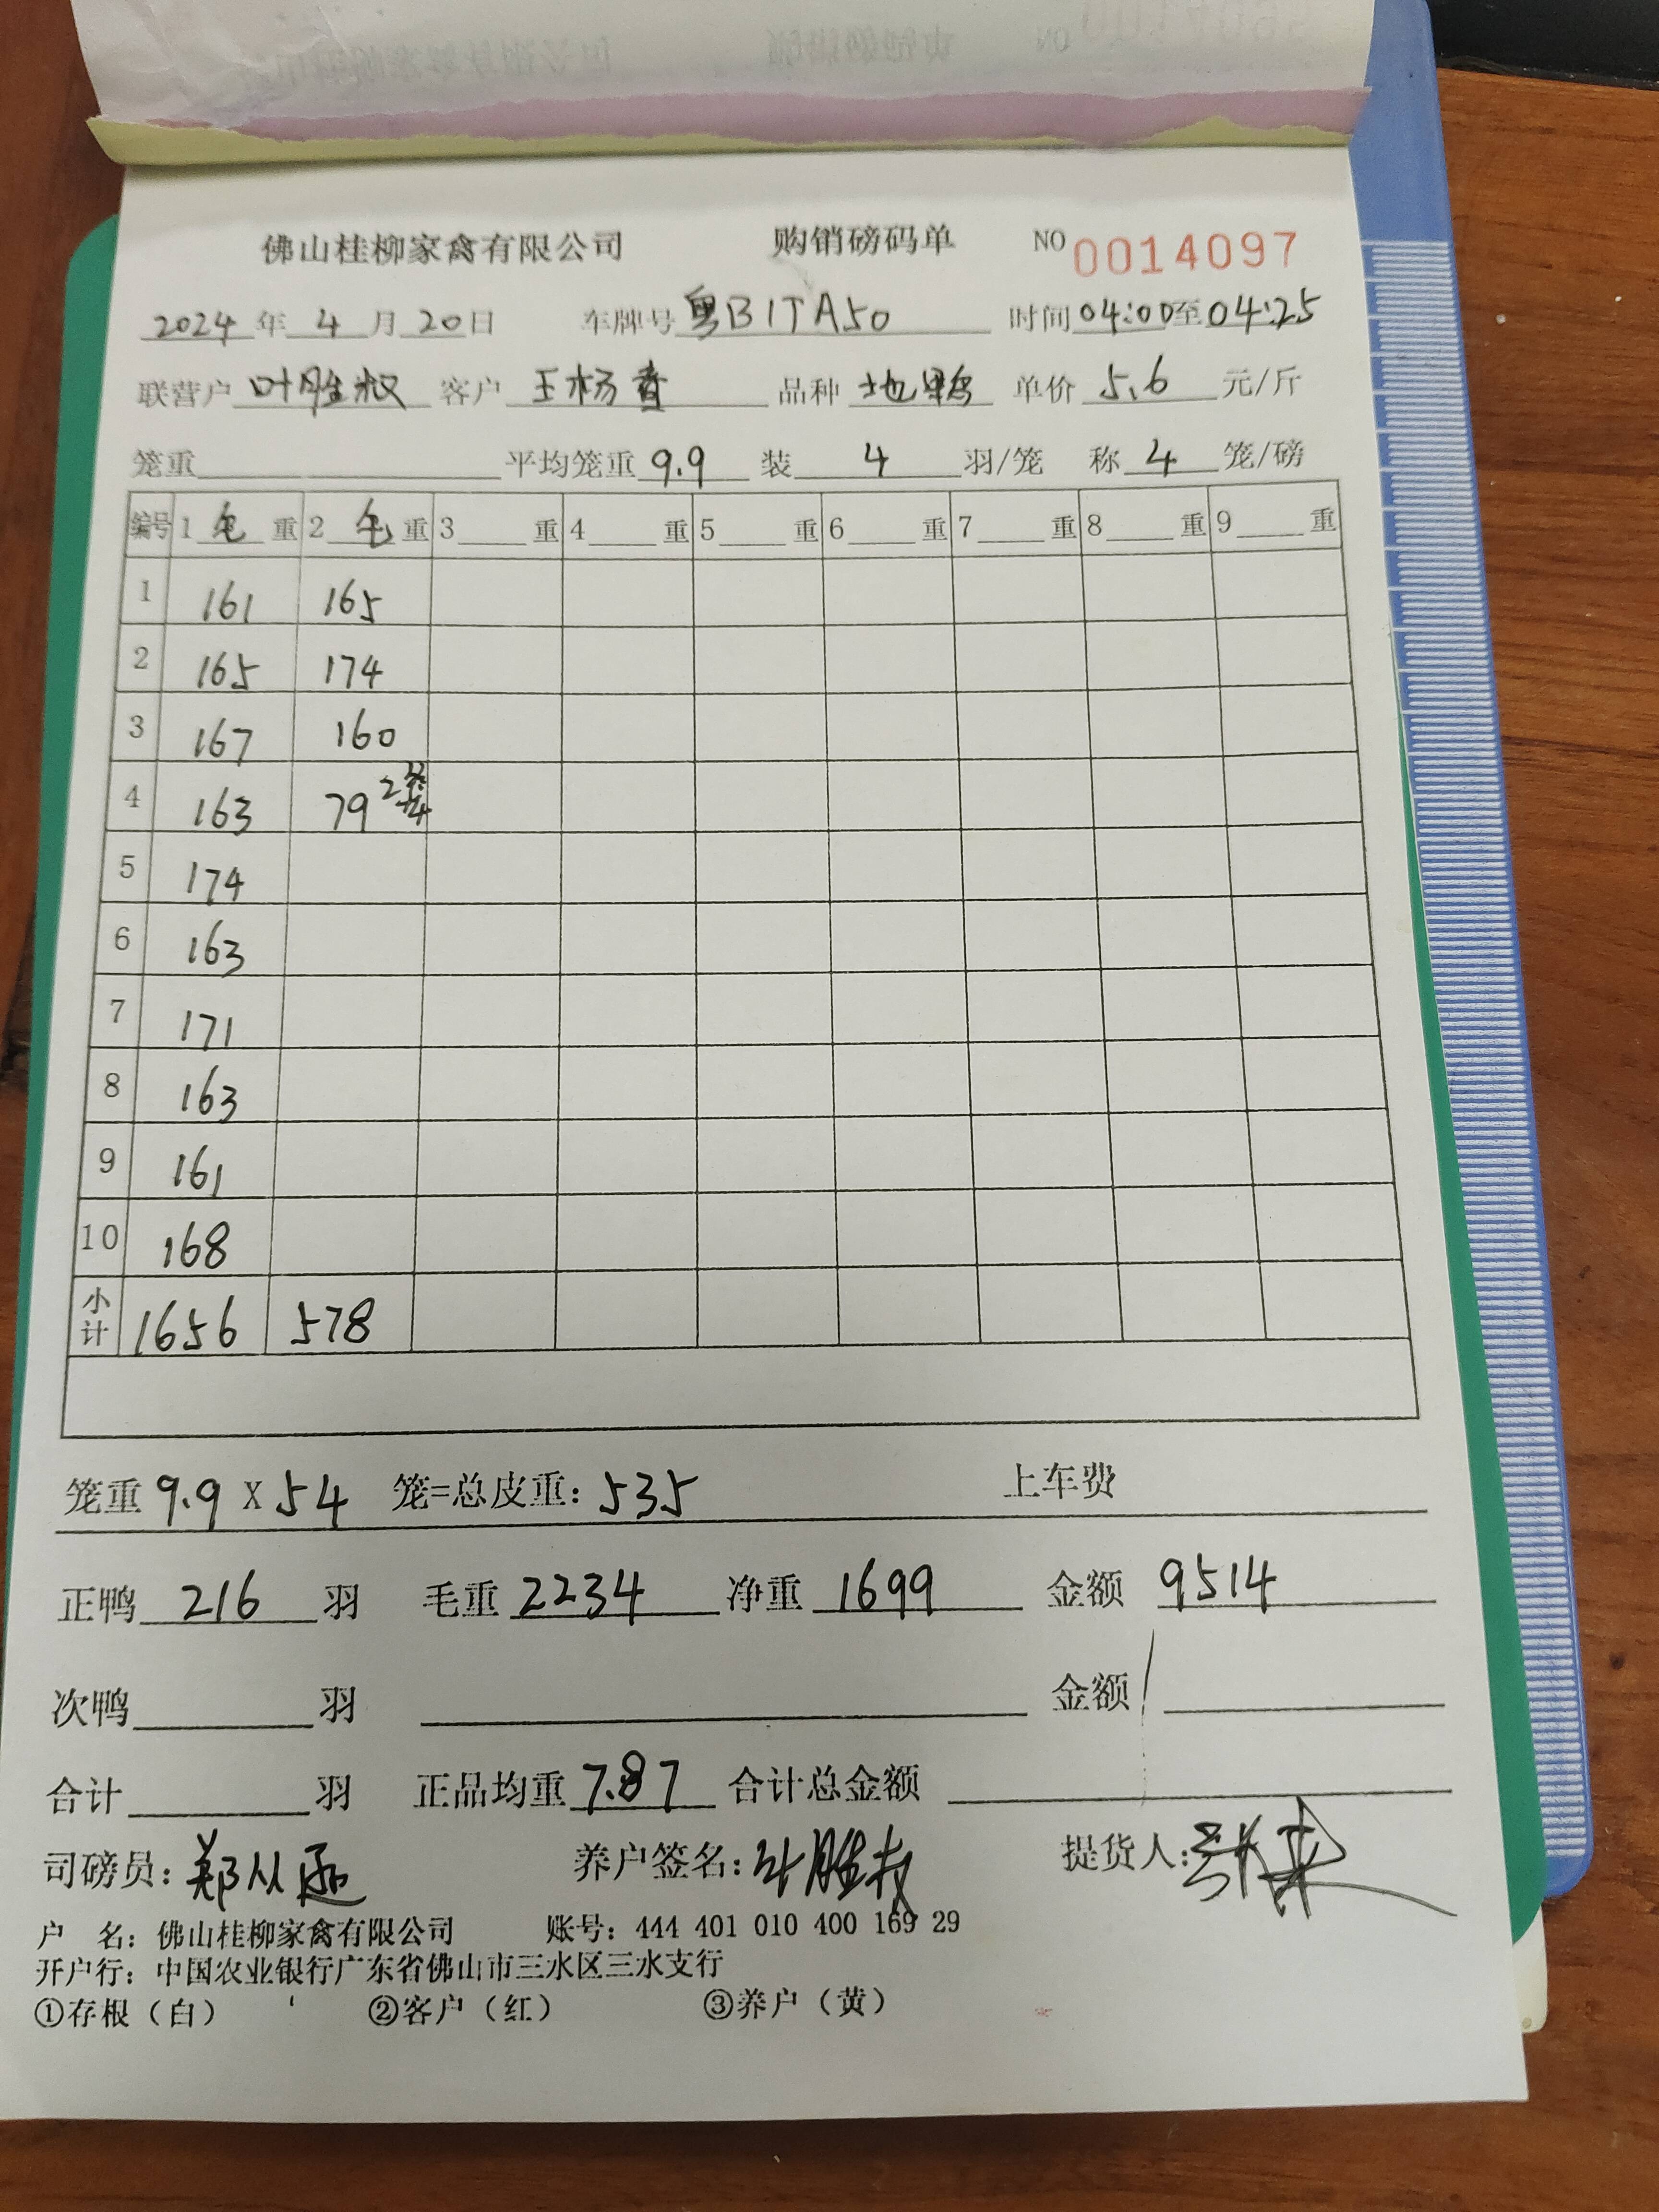 佛山桂柳家禽有限公司 购销磅码单 NO 0014097
2024 年 4 月 20 日 车牌号 粤B1TA50 时间 04:00 至 04:25
联营户 叶胜权 客户 王杨 品种 地鸭 单价 5.6 元/斤
笼重 平均笼重 9.9 装 4 羽/笼 称 4 笼/磅
编号 1 毛 重 2 毛 重 3 重 4 重 5 重 6 重 7 重 8 重 9 重
1 161 165
2 165 174
3 167 160
4 163 79 2笼
5 174
6 163
7 171
8 163
9 161
10 168
小计 1656 578
笼重 9.9 X 54 笼=总皮重: 535 上车费
正鸭 216 羽 毛重 2234 净重 1699 金额 9514
次鸭 羽 金额
合计 羽 正品均重 7.87 合计总金额
司磅员: 郑从 养户签名: 叶胜权 提货人:
户 名: 佛山桂柳家禽有限公司 账号: 444 401 010 400 169 29
开户行: 中国农业银行广东省佛山市三水区三水支行
①存根（白） ②客户（红） ③养户（黄）